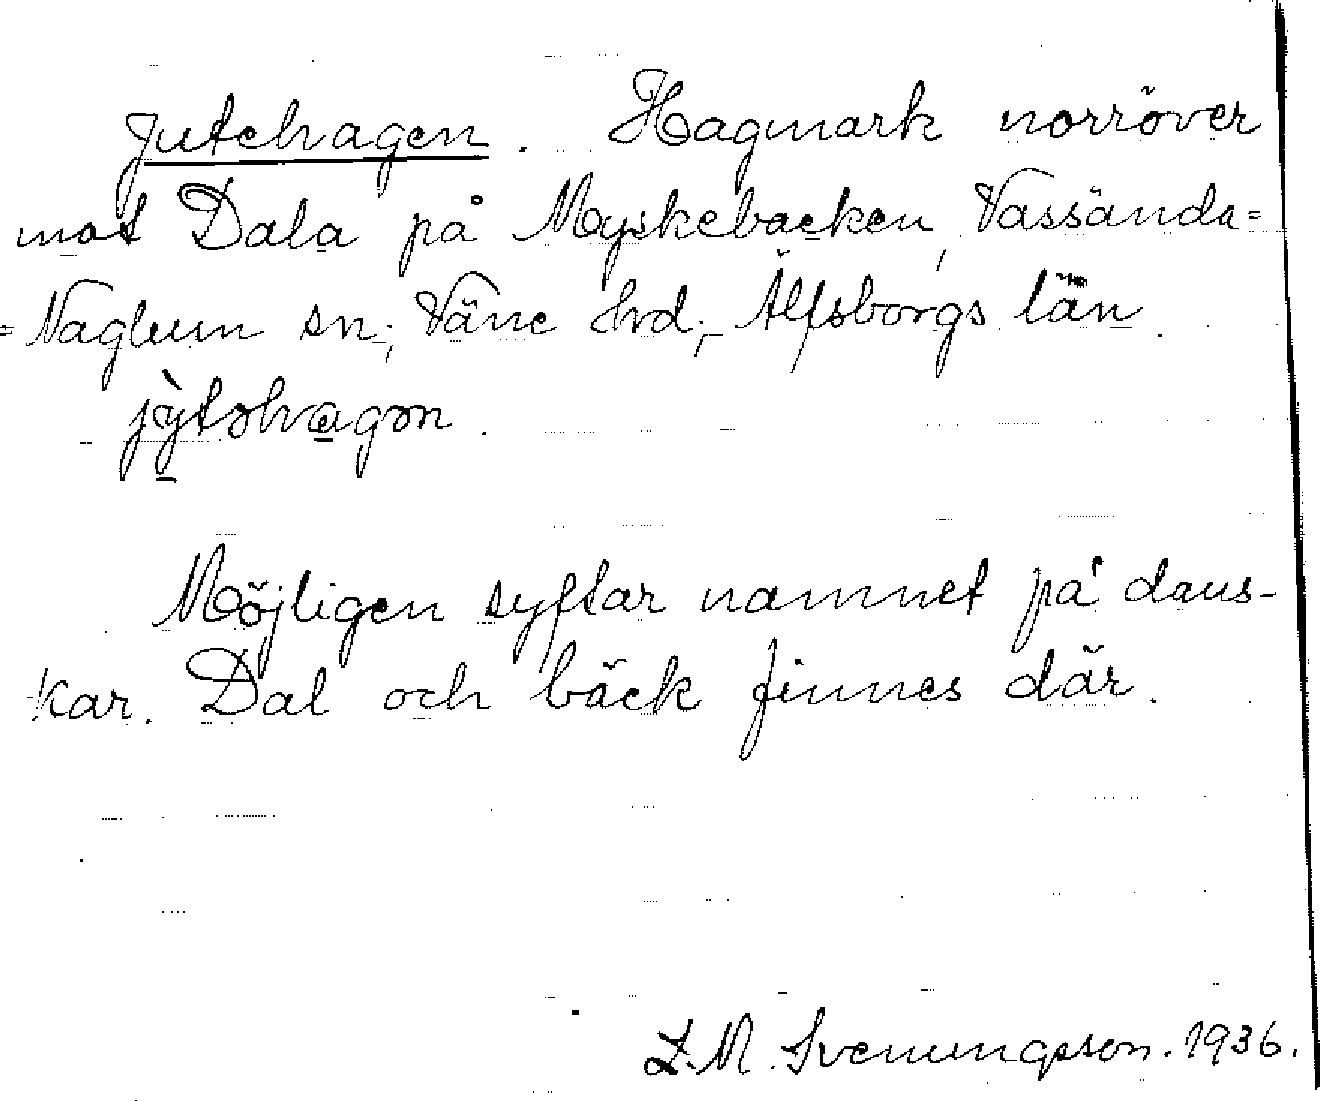 Jutehagen. Hagmark norröver
mot Dala på Myskebacken, Vassända=
=Naglum sn; Väne hrd; Älfsborgs län.
jỳtəhagən.
Möjligen syftar namnet på dans-
kar. Dal och bäck finnes där.
L. M. Svenungsson. 1936.